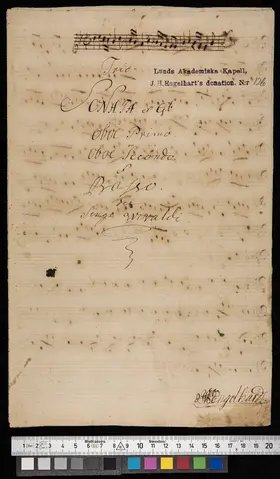 Trio
Lunds Akademiska Kapell,
J. H. Engelhart's donation. N:r
SONATA
Oboe Primo
Oboe Secondo
è
Basso
Vivaldi
Engelhardt
0 1 2 3 4 5 6 7 8 9 10 11 12 13 14 15 16 17 18 19 20